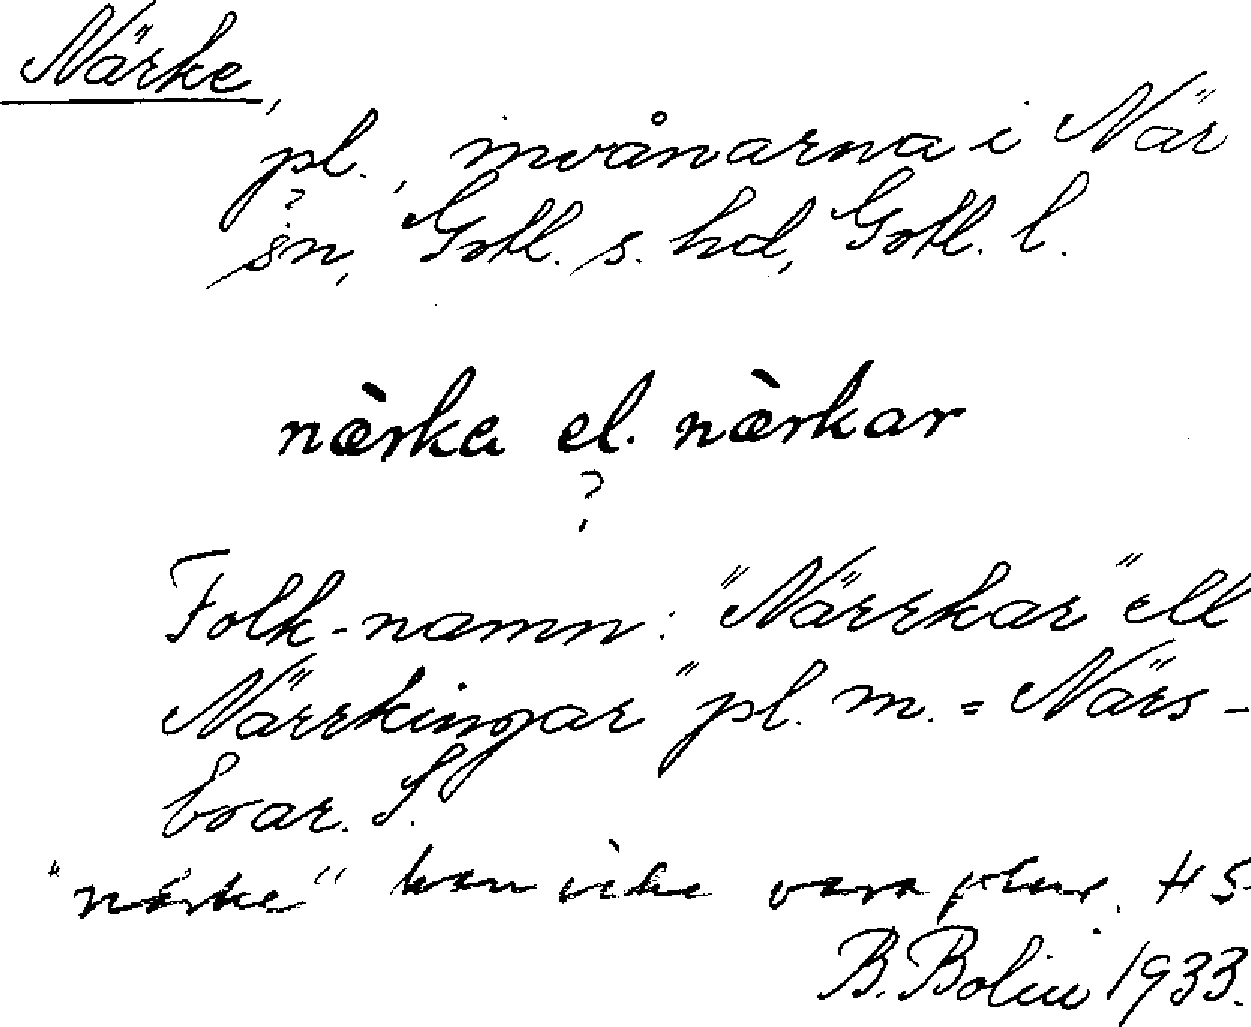 Närke,
pl., invånarna i När
?
sn, Gotl. s. hd, Gotl. l.
nærka el. nærkar
?
Folk-namn: "Närrkar" ell
Närrkingar" pl. m. = Närs-
boar. S.
"närke" kan icke vara plur. HS.
B. Bolin 1933.